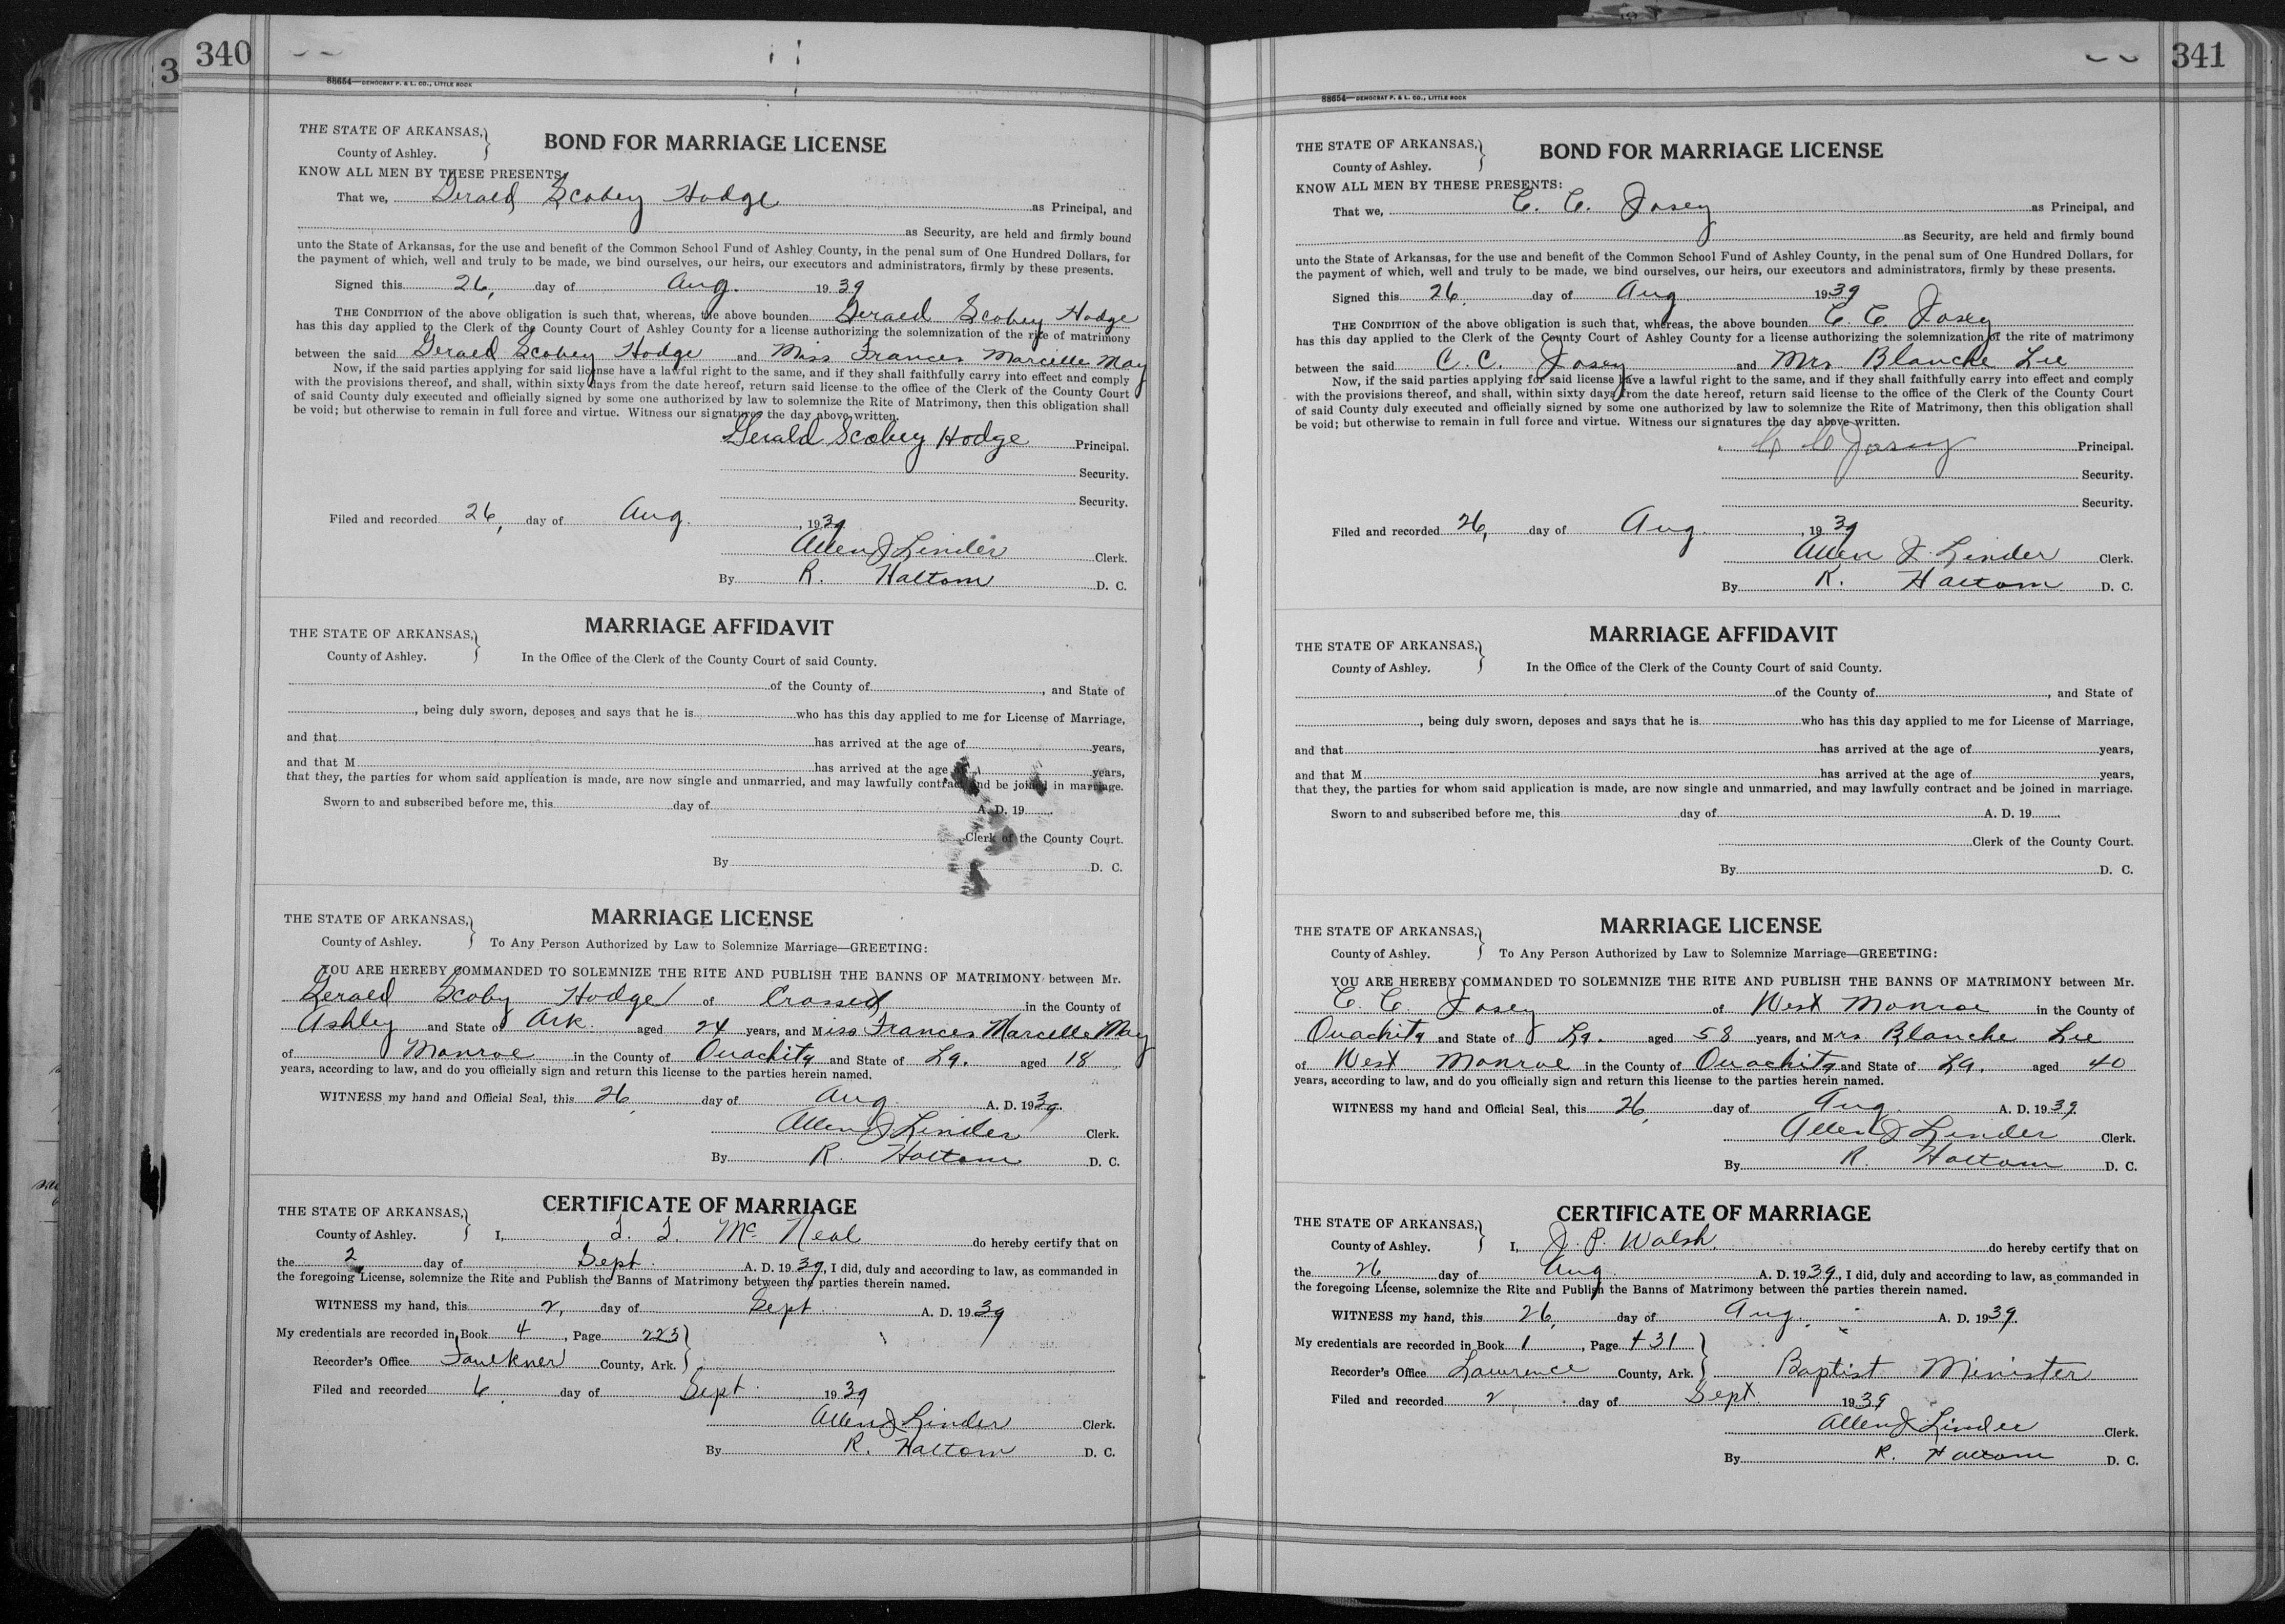 340
3
88654—DEMOCRAT P. & L. CO., LITTLE ROCK
THE STATE OF ARKANSAS,
County of Ashley.
BOND FOR MARRIAGE LICENSE
KNOW ALL MEN BY THESE PRESENTS:
That we, Gerald Scobey Hodge as Principal, and
as Security, are held and firmly bound
unto the State of Arkansas, for the use and benefit of the Common School Fund of Ashley County, in the penal sum of One Hundred Dollars, for
the payment of which, well and truly to be made, we bind ourselves, our heirs, our executors and administrators, firmly by these presents.
Signed this 26, day of Aug. 1939
THE CONDITION of the above obligation is such that, whereas, the above bounden Gerald Scobey Hodge
has this day applied to the Clerk of the County Court of Ashley County for a license authorizing the solemnization of the rite of matrimony
between the said Gerald Scobey Hodge and Miss Frances Marcelle May
Now, if the said parties applying for said license have a lawful right to the same, and if they shall faithfully carry into effect and comply
with the provisions thereof, and shall, within sixty days from the date hereof, return said license to the office of the Clerk of the County Court
of said County duly executed and officially signed by some one authorized by law to solemnize the Rite of Matrimony, then this obligation shall
be void; but otherwise to remain in full force and virtue. Witness our signatures the day above written.
Gerald Scobey Hodge Principal.
Security.
Security.
Filed and recorded 26, day of Aug. , 1939
Allen J Linder Clerk.
By R. Haltom D. C.
THE STATE OF ARKANSAS,
County of Ashley.
MARRIAGE AFFIDAVIT
In the Office of the Clerk of the County Court of said County.
of the County of , and State of
, being duly sworn, deposes and says that he is who has this day applied to me for License of Marriage,
and that has arrived at the age of years,
and that M has arrived at the age of years,
that they, the parties for whom said application is made, are now single and unmarried, and may lawfully contract and be joined in marriage.
Sworn to and subscribed before me, this day of A. D. 19
Clerk of the County Court.
By D. C.
THE STATE OF ARKANSAS,
County of Ashley.
MARRIAGE LICENSE
To Any Person Authorized by Law to Solemnize Marriage—GREETING:
YOU ARE HEREBY COMMANDED TO SOLEMNIZE THE RITE AND PUBLISH THE BANNS OF MATRIMONY between Mr.
Gerald Scoby Hodge of Crossett in the County of
Ashley and State of Ark. aged 24 years, and Miss Frances Marcelle May
of Monroe in the County of Ouachita and State of La. aged 18
years, according to law, and do you officially sign and return this license to the parties herein named.
WITNESS my hand and Official Seal, this 26 day of Aug A. D. 1939
Allen J Linder Clerk.
By R. Haltom D. C.
THE STATE OF ARKANSAS,
County of Ashley.
CERTIFICATE OF MARRIAGE
I, T. T. McNeal do hereby certify that on
the 2 day of Sept. A. D. 1939, I did, duly and according to law, as commanded in
the foregoing License, solemnize the Rite and Publish the Banns of Matrimony between the parties therein named.
WITNESS my hand, this 2, day of Sept A. D. 1939
My credentials are recorded in Book 4 , Page 223
Recorder's Office Faulkner County, Ark.
Filed and recorded 6 day of Sept. 1939
Allen J Linder Clerk.
By R. Haltom D. C.
341
88654—DEMOCRAT P. & L. CO., LITTLE ROCK
THE STATE OF ARKANSAS,
County of Ashley.
BOND FOR MARRIAGE LICENSE
KNOW ALL MEN BY THESE PRESENTS:
That we, C. C. Josey as Principal, and
as Security, are held and firmly bound
unto the State of Arkansas, for the use and benefit of the Common School Fund of Ashley County, in the penal sum of One Hundred Dollars, for
the payment of which, well and truly to be made, we bind ourselves, our heirs, our executors and administrators, firmly by these presents.
Signed this 26, day of Aug 1939
THE CONDITION of the above obligation is such that, whereas, the above bounden C. C. Josey
has this day applied to the Clerk of the County Court of Ashley County for a license authorizing the solemnization of the rite of matrimony
between the said C. C. Josey and Mrs. Blanche Lee
Now, if the said parties applying for said license have a lawful right to the same, and if they shall faithfully carry into effect and comply
with the provisions thereof, and shall, within sixty days from the date hereof, return said license to the office of the Clerk of the County Court
of said County duly executed and officially signed by some one authorized by law to solemnize the Rite of Matrimony, then this obligation shall
be void; but otherwise to remain in full force and virtue. Witness our signatures the day above written.
C C Josey Principal.
Security.
Security.
Filed and recorded 26, day of Aug. , 1939
Allen J. Linder Clerk.
By R. Haltom D. C.
THE STATE OF ARKANSAS,
County of Ashley.
MARRIAGE AFFIDAVIT
In the Office of the Clerk of the County Court of said County.
of the County of , and State of
, being duly sworn, deposes and says that he is who has this day applied to me for License of Marriage,
and that has arrived at the age of years,
and that M has arrived at the age of years,
that they, the parties for whom said application is made, are now single and unmarried, and may lawfully contract and be joined in marriage.
Sworn to and subscribed before me, this day of A. D. 19
Clerk of the County Court.
By D. C.
THE STATE OF ARKANSAS,
County of Ashley.
MARRIAGE LICENSE
To Any Person Authorized by Law to Solemnize Marriage—GREETING:
YOU ARE HEREBY COMMANDED TO SOLEMNIZE THE RITE AND PUBLISH THE BANNS OF MATRIMONY between Mr.
C. C. Josey of West Monroe in the County of
Ouachita and State of La. aged 58 years, and Mrs. Blanche Lee
of West Monroe in the County of Ouachita and State of La. aged 40
years, according to law, and do you officially sign and return this license to the parties herein named.
WITNESS my hand and Official Seal, this 26, day of Aug. A. D. 1939
Allen J Linder Clerk.
By R. Haltom D. C.
THE STATE OF ARKANSAS,
County of Ashley.
CERTIFICATE OF MARRIAGE
I, J. P. Walsh. do hereby certify that on
the 26, day of Aug A. D. 1939, I did, duly and according to law, as commanded in
the foregoing License, solemnize the Rite and Publish the Banns of Matrimony between the parties therein named.
WITNESS my hand, this 26, day of Aug. A. D. 1939.
My credentials are recorded in Book 1 , Page 431
Recorder's Office Lawrence County, Ark. Baptist Minister
Filed and recorded 2, day of Sept. 1939
Allen J Linder Clerk.
By R. Haltom D. C.